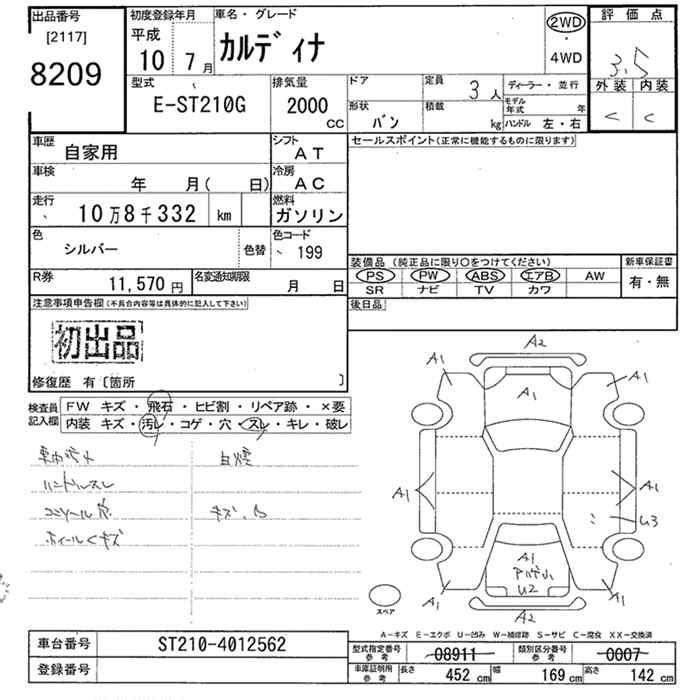 出品番号 初度登録年月 車名・グレード 評価点
[2117] 平成 カルディナ 2WD
8209 10年 7月 ・ 3.5
4WD
型式 排気量 ドア 定員 3人 ディーラー・並行 外装 内装
E-ST210G 2000 CC 形状 バン 積載 kg モデル年式 年 C C
ハンドル 左・右
車歴 自家用 シフト AT セールスポイント(正常に機能するものに限ります)
車検 年 月( 日) 冷房 AC
走行 10万8千332 km 燃料 ガソリン
色 シルバー 色替 色コード 199
装備品(純正品に限り○をつけてください) 新車保証書
R券 11,570円 名変通知期限 月 日 PS PW ABS エアB AW 有・無
SR ナビ TV カワ
注意事項申告欄(不具合内容等は具体的に記入して下さい) 後日品
初出品
修復歴 有〔箇所 〕
検査員記入欄 FW キズ・飛石・ヒビ割・リペア跡・×要
内装 キズ・汚レ・コゲ・穴・スレ・キレ・破レ
車内汚れ 白煙
ハンドルスレ
コンソール穴 キズ、凸
ホイールキズ
A2
A1 A1
A1
A1 A1
U3
A1
U2
A1 A1
スペア A2
A-キズ E-エクボ U-凹み W-補修跡 S-サビ C-腐食 XX-交換済
車台番号 ST210-4012562 型式指定番号 参考 08911 類別区分番号 参考 0007
登録番号 車庫証明用 参考 長さ 452cm 幅 169cm 高さ 142cm